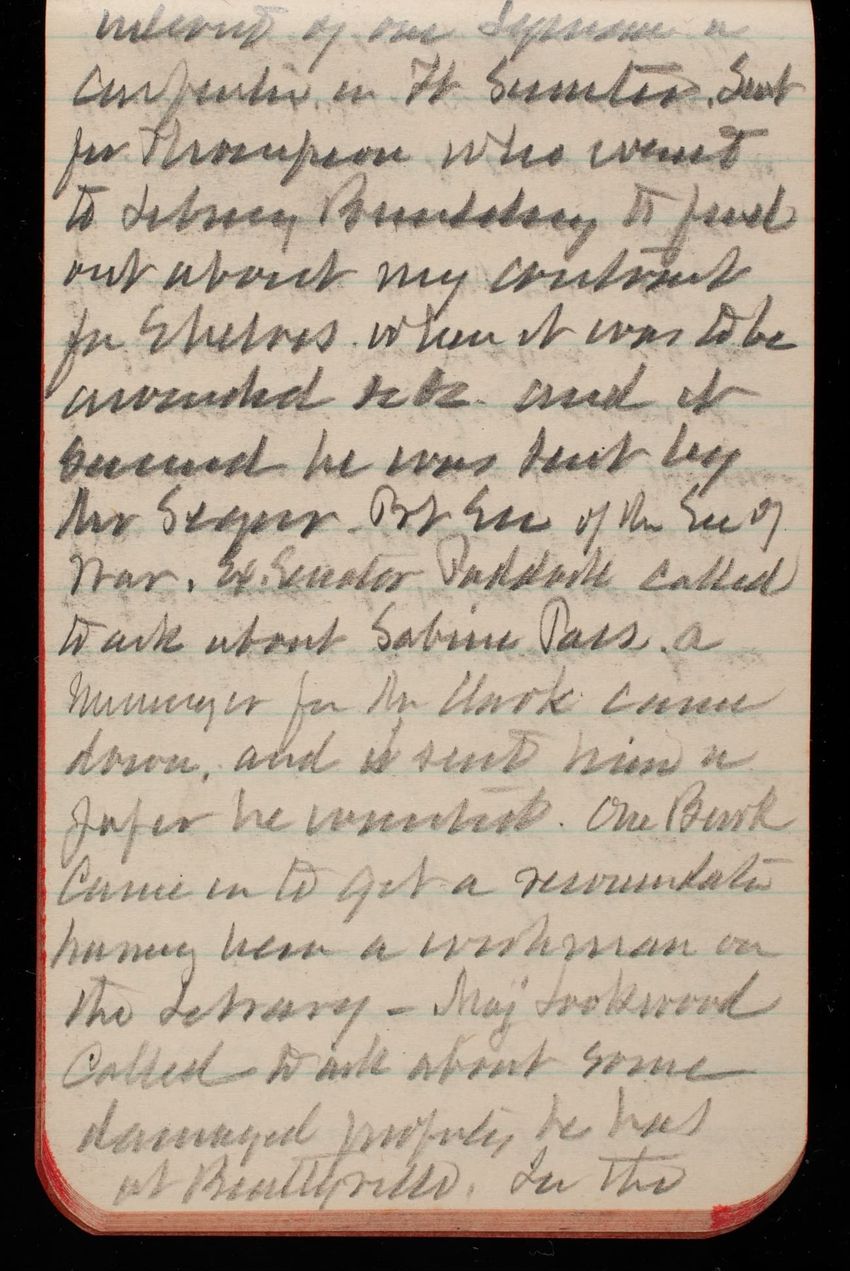 interest of one Lepmann a
Carpenter in Ft Sumter. Sent
for Thompson who went
to Library Building to find
out about my contract
for Shelves. When it was to be
awarded &c &c. and it
seemed he was sent by
Mr Seger Pvt Sec of the Sec of
War. Ex. Senator Paddock called
to ask about Sabine Pass. a
Messenger for Mr Clark came
down, and I sent him a
paper he wanted. One Burk
Came in to get a recomendatn
having been a workman on
the Library - Maj Lockwood
Called to ask about some
damaged property he has
at Beattyville. In the